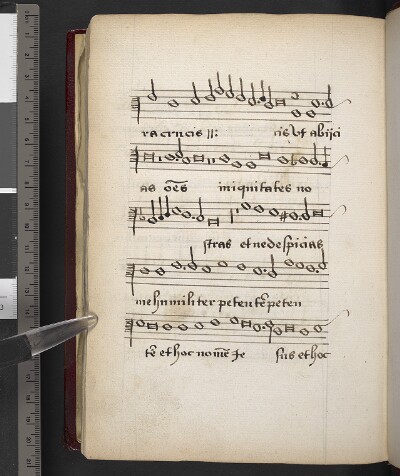 ra crucis :||: cis ut abijci
as oēs iniquitates no
stras et ne despicias
me humiliter petentē peten
tē et hoc nomē Je sus et hoc